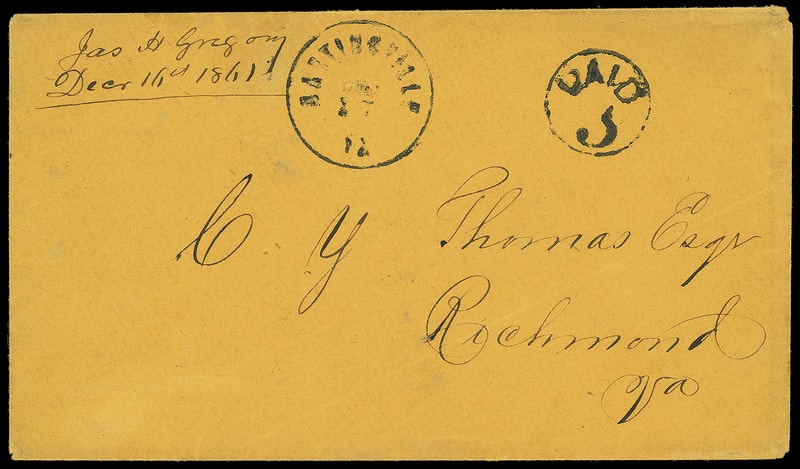 Jas H Gregory
Decr 16th 1861
MARTINSVILLE
DEC
17
VA
PAID
5
C Y Thomas Esqr
Richmond
Va